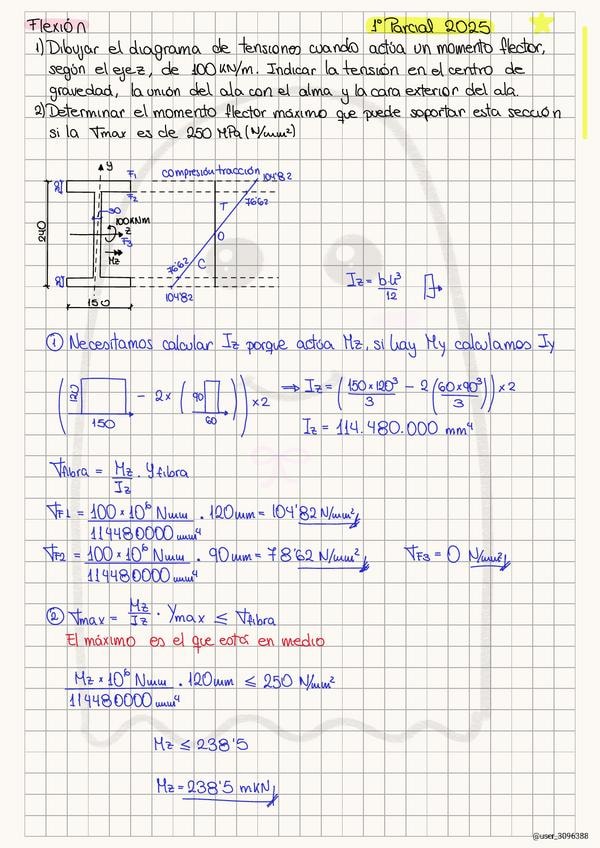 Flexión 1º Parcial 2025
1) Dibujar el diagrama de tensiones cuando actúa un momento flector,
según el eje z, de 100 KN/m. Indicar la tensión en el centro de
gravedad, la unión del ala con el alma y la cara exterior del ala.
2) Determinar el momento flector máximo que puede soportar esta sección
si la σmax es de 250 MPa (N/mm²)
y F1 compresión tracción 104'82
F2 76'62
T
30
100KNm
240 z O
F3
Mz 76'62 C
Iz = b·h³/12
104'82
150
① Necesitamos calcular Iz porque actúa Mz, si hay My calculamos Iy
(120 150 - 2x (90 60)) x2 ⇒ Iz = (150x120³/3 - 2(60x90³/3)) x2
Iz = 114.480.000 mm⁴
σfibra = Mz/Iz · yfibra
σF1 = 100x10⁶ Nmm/114480000 mm⁴ · 120mm = 104'82 N/mm²
σF2 = 100x10⁶ Nmm/114480000 mm⁴ · 90mm = 78'62 N/mm² σF3 = 0 N/mm²
② σmax = Mz/Iz · Ymax ≤ σfibra
El máximo es el que está en medio
Mz x 10⁶ Nmm/114480000 mm⁴ · 120mm ≤ 250 N/mm²
Mz ≤ 238'5
Mz = 238'5 mKN
@user_3096388